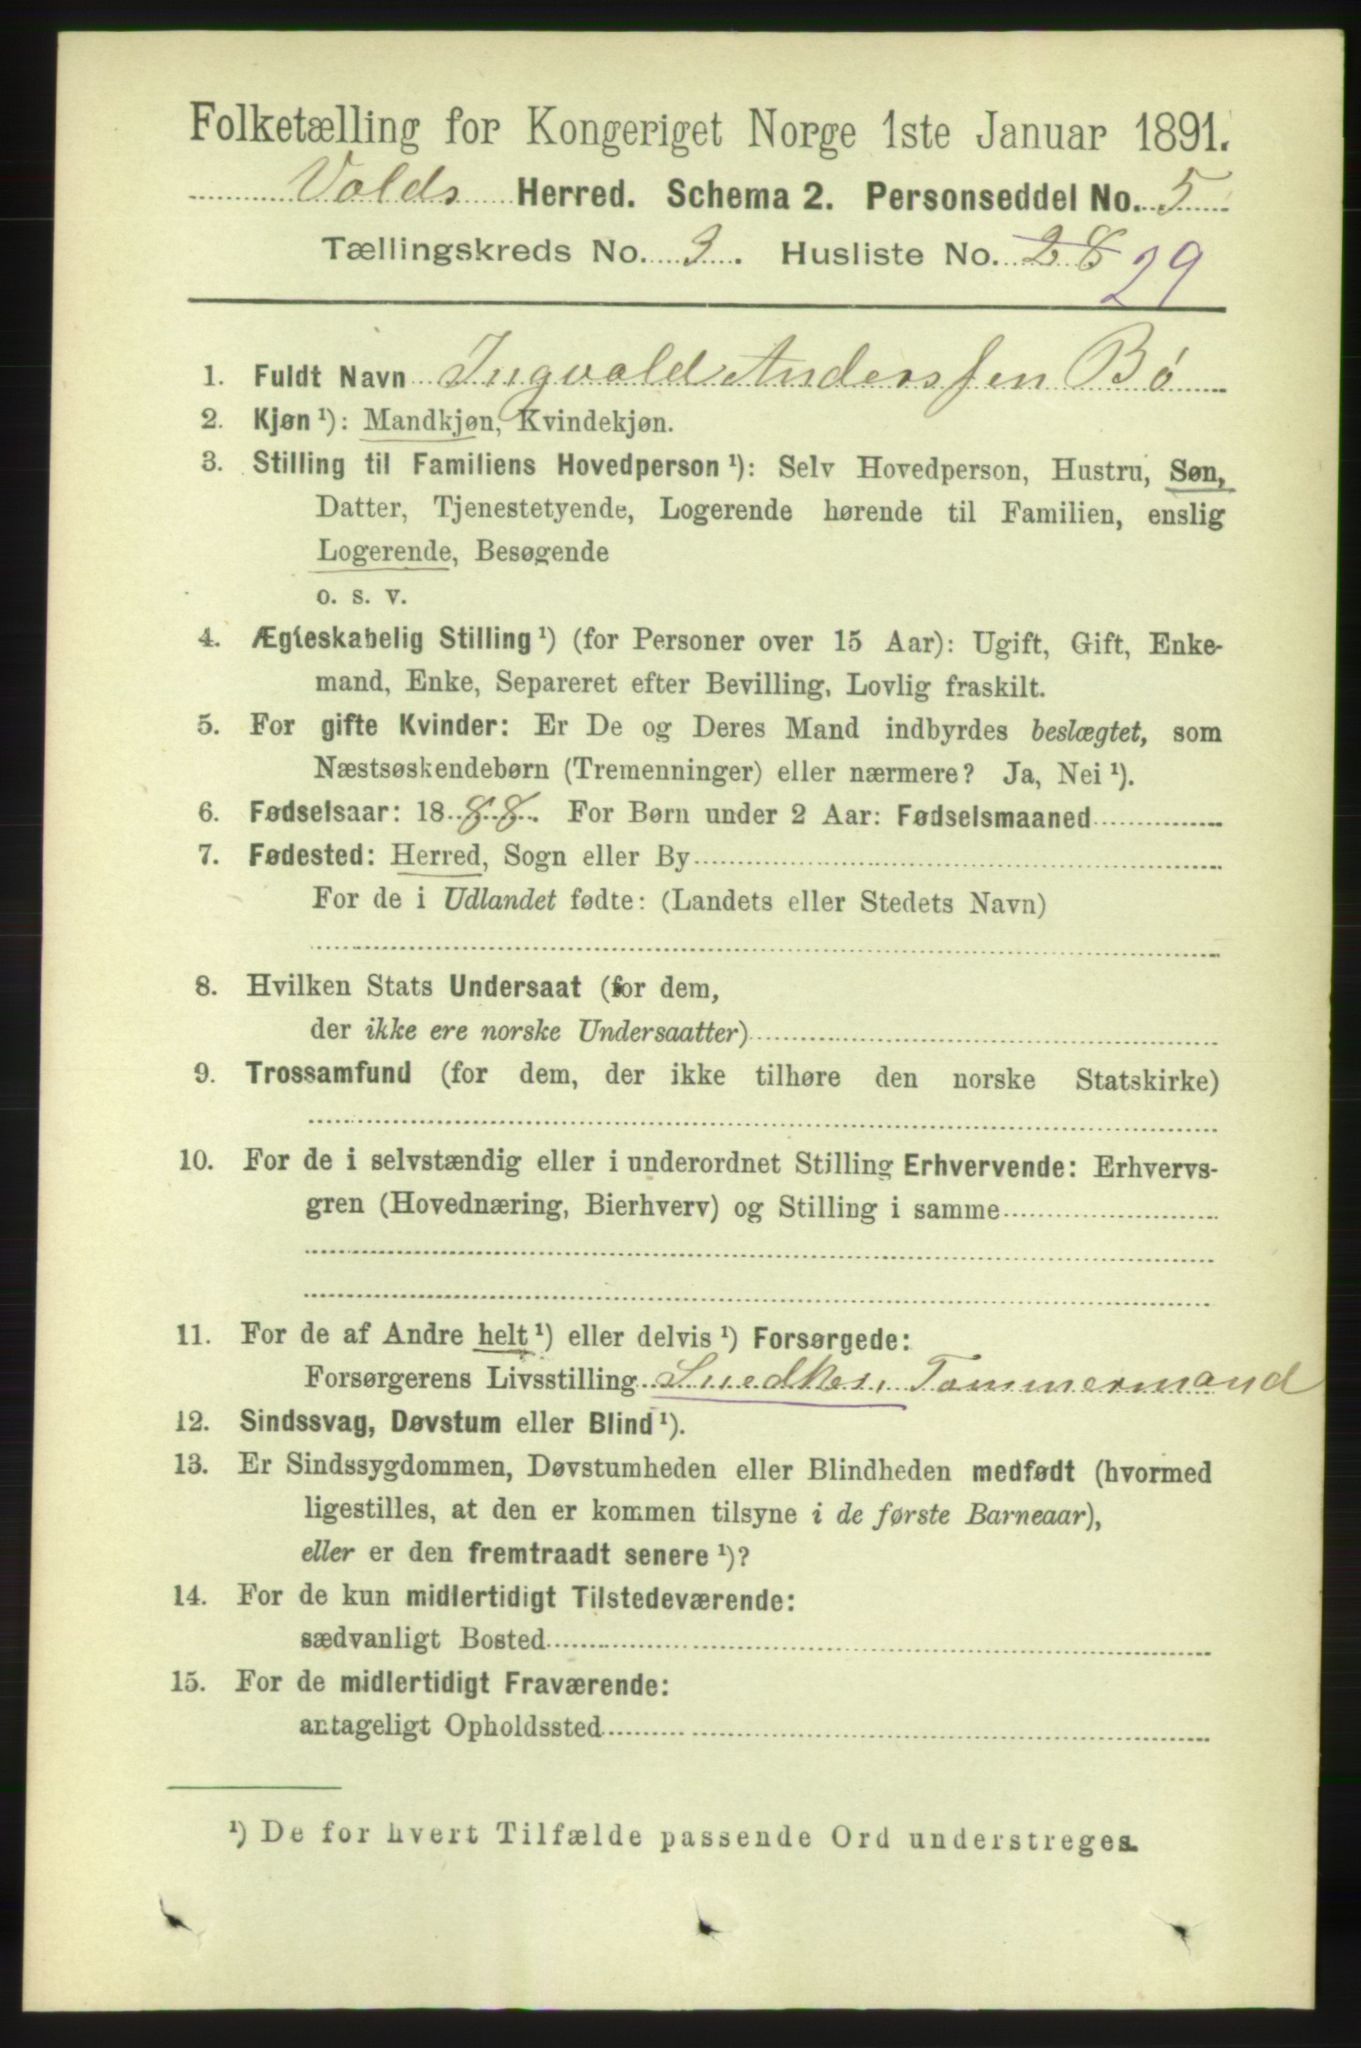 Folketælling for Kongeriget Norge 1ste Januar 1891.
Volds Herred. Schema 2. Personseddel No. 5
Tællingskreds No. 3. Husliste No. 28 29
1. Fuldt Navn Ingvald Anderssen Bø
2. Kjøn ¹): Mandkjøn, Kvindekjøn.
3. Stilling til Familiens Hovedperson ¹): Selv Hovedperson, Hustru, Søn,
Datter, Tjenestetyende, Logerende hørende til Familien, enslig
Logerende, Besøgende
o. s. v.
4. Ægteskabelig Stilling ¹) (for Personer over 15 Aar): Ugift, Gift, Enke-
mand, Enke, Separeret efter Bevilling, Lovlig fraskilt.
5. For gifte Kvinder: Er De og Deres Mand indbyrdes beslægtet, som
Næstsøskendebørn (Tremenninger) eller nærmere? Ja, Nei ¹).
6. Fødselsaar: 1888. For Børn under 2 Aar: Fødselsmaaned
7. Fødested: Herred, Sogn eller By
For de i Udlandet fødte: (Landets eller Stedets Navn)
8. Hvilken Stats Undersaat (for dem,
der ikke ere norske Undersaatter)
9. Trossamfund (for dem, der ikke tilhøre den norske Statskirke)
10. For de i selvstændig eller i underordnet Stilling Erhvervende: Erhvervs-
gren (Hovednæring, Bierhverv) og Stilling i samme
11. For de af Andre helt ¹) eller delvis ¹) Forsørgede:
Forsørgerens Livsstilling Snedker, Tømmermand
12. Sindssvag, Døvstum eller Blind ¹).
13. Er Sindssygdommen, Døvstumheden eller Blindheden medfødt (hvormed
ligestilles, at den er kommen tilsyne i de første Barneaar),
eller er den fremtraadt senere ¹)?
14. For de kun midlertidigt Tilstedeværende:
sædvanligt Bosted
15. For de midlertidigt Fraværende:
antageligt Opholdssted
¹) De for hvert Tilfælde passende Ord understreges.